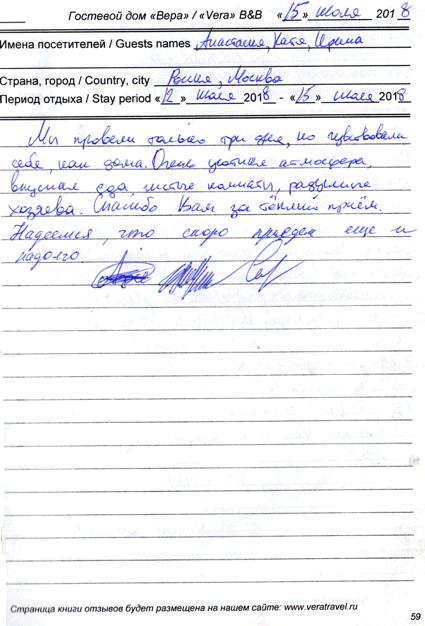 Гостевой дом «Вера» / «Vera» B&B «15» июля 2018
Имена посетителей / Guests names Анастасия, Катя, Ирина
Страна, город / Country, city Россия, Москва
Период отдыха / Stay period «12» июля 2018 - «15» июля 2018
Мы провели только три дня, но чувствовали
себя, как дома. Очень уютная атмосфера,
вкусная еда, чистые комнаты, радушные
хозяева. Спасибо Вам за тёплый приём.
Надеемся, что скоро приедем еще и
надолго.
Страница книги отзывов будет размещена на нашем сайте: www.veratravel.ru
59